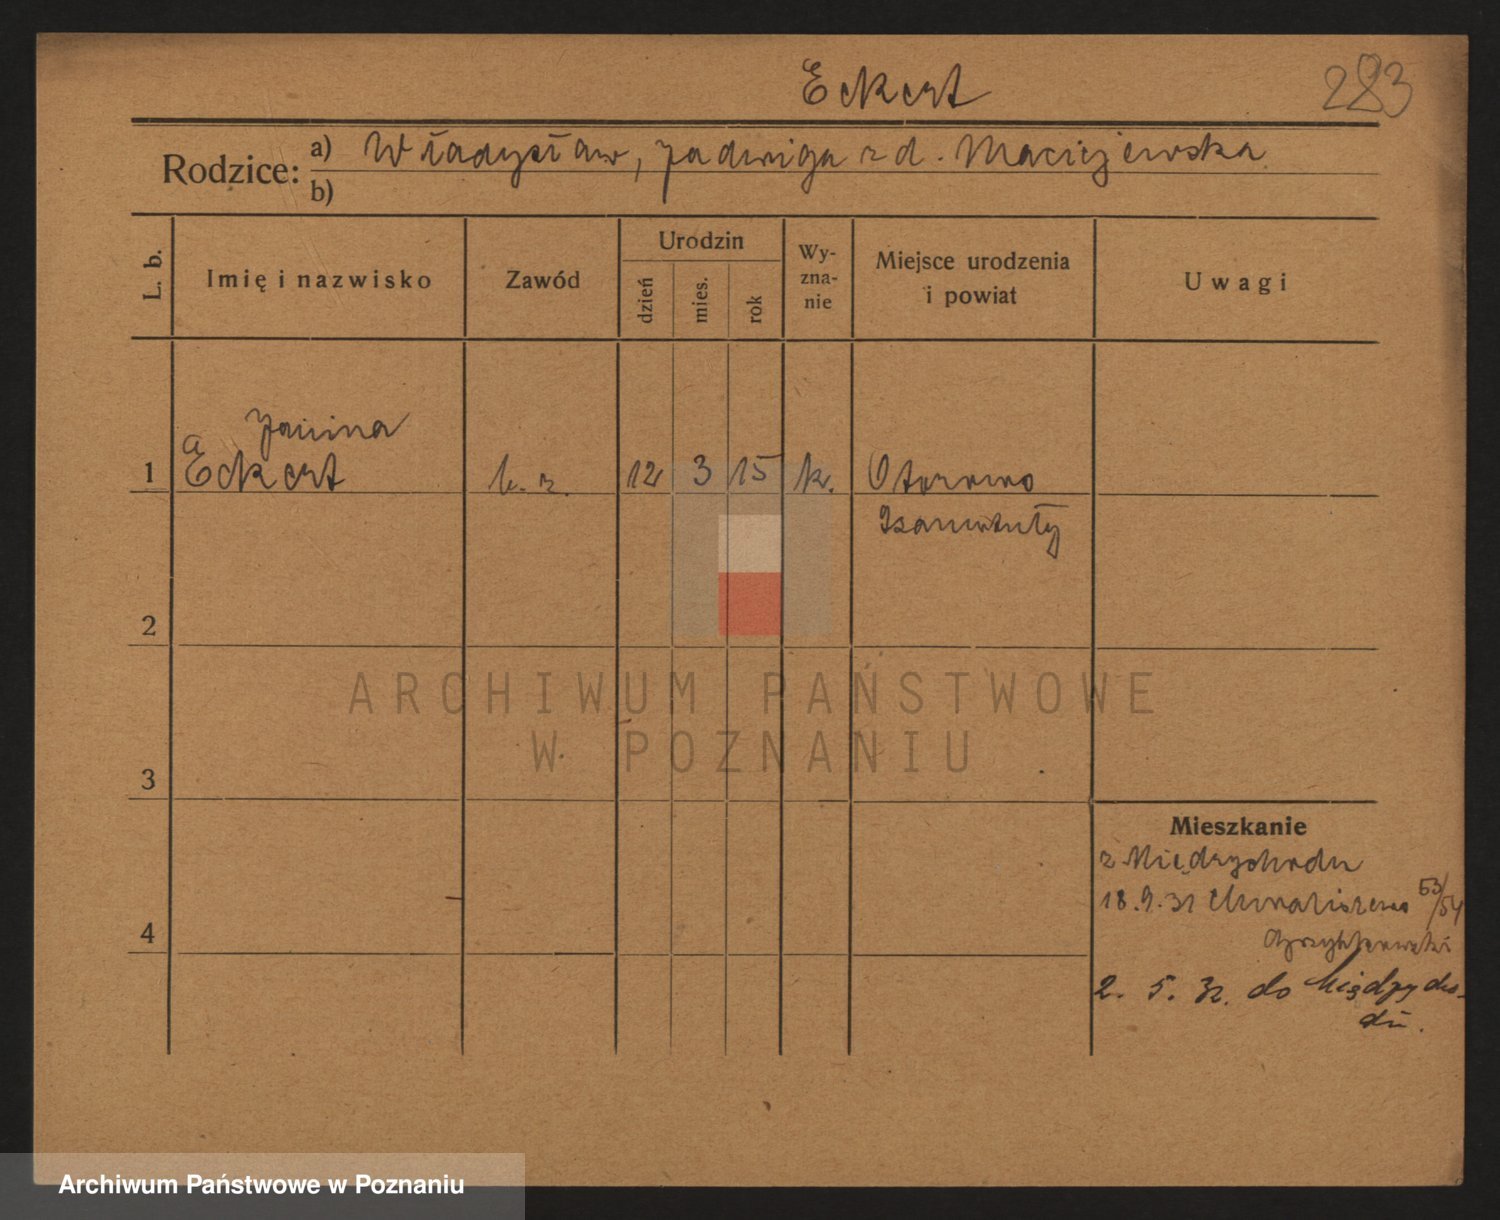 Eckert
283
Rodzice: a) Władysław, Jadwiga z d. Maciejewska
b)
L. b.
Imię i nazwisko
Zawód
Urodzin
dzień
mies.
rok
Wy-
zna-
nie
Miejsce urodzenia
i powiat
Uwagi
Janina
1 Eckert b. z. 12 3 15 k. Otorowo
Szamotuły
2
3
4
Mieszkanie
z Międzychodu
18.9.31 Chwaliszewo 53/54
2. 5. 32. do Międzycho-
du.
ARCHIWUM PAŃSTWOWE
W POZNANIU
Archiwum Państwowe w Poznaniu